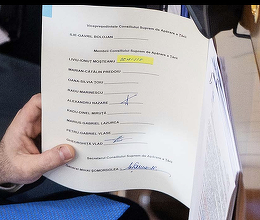 Vicepreședintele Consiliului Suprem de Apărare a Țării
ILIE-GAVRIL BOLOJAN
Membrii Consiliului Suprem de Apărare a Țării
LIVIU-IONUȚ MOȘTEANU
MARIAN-CĂTĂLIN PREDOIU
OANA-SILVIA ȚOIU
RADU MARINESCU
ALEXANDRU NAZARE
RADU-DINEL MIRUȚĂ
MARIUS-GABRIEL LAZURCA
PETRU-GABRIEL VLASE
GHEORGHIȚĂ VLAD
Secretarul Consiliului Suprem de Apărare a Țării
MIHAI ȘOMORDOLEA